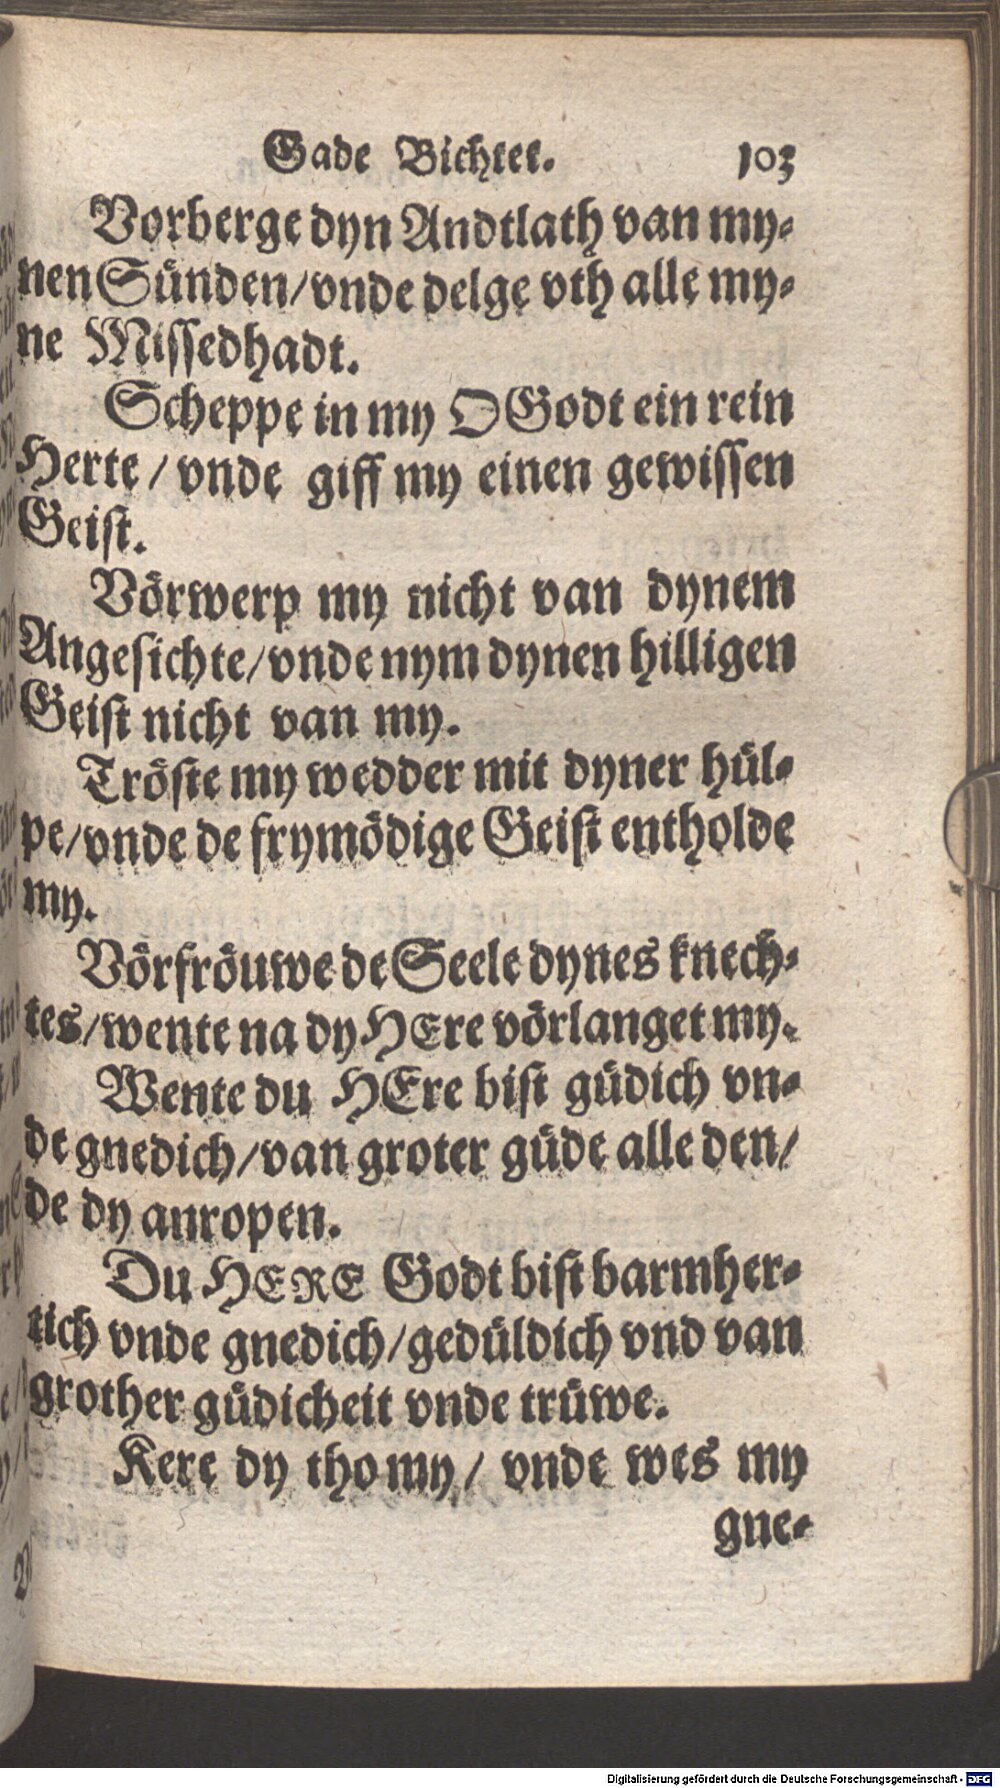 Gade Bichtet. 103
Vorberge dyn Andtlath van my-
nen Sünden/vnde delge vth alle my-
ne Missedhadt.
Scheppe in my O Godt ein rein
Herte / vnde giff my einen gewissen
Geist.
Vörwerp my nicht van dynem
Angesichte/vnde nym dynen hilligen
Geist nicht van my.
Tröste my wedder mit dyner hül-
pe/vnde de frymödige Geist entholde
my.
Vörfröuwe de Seele dynes knech-
tes/wente na dy HEre vörlanget my.
Wente du HEre bist güdich vn-
de gnedich/van groter güde alle den/
de dy anropen.
Du HERE Godt bist barmher-
tich vnde gnedich/gedüldich vnd van
grother güdicheit vnde trüwe.
Kere dy tho my/ vnde wes my
gne-
Digitalisierung gefördert durch die Deutsche Forschungsgemeinschaft - DFG